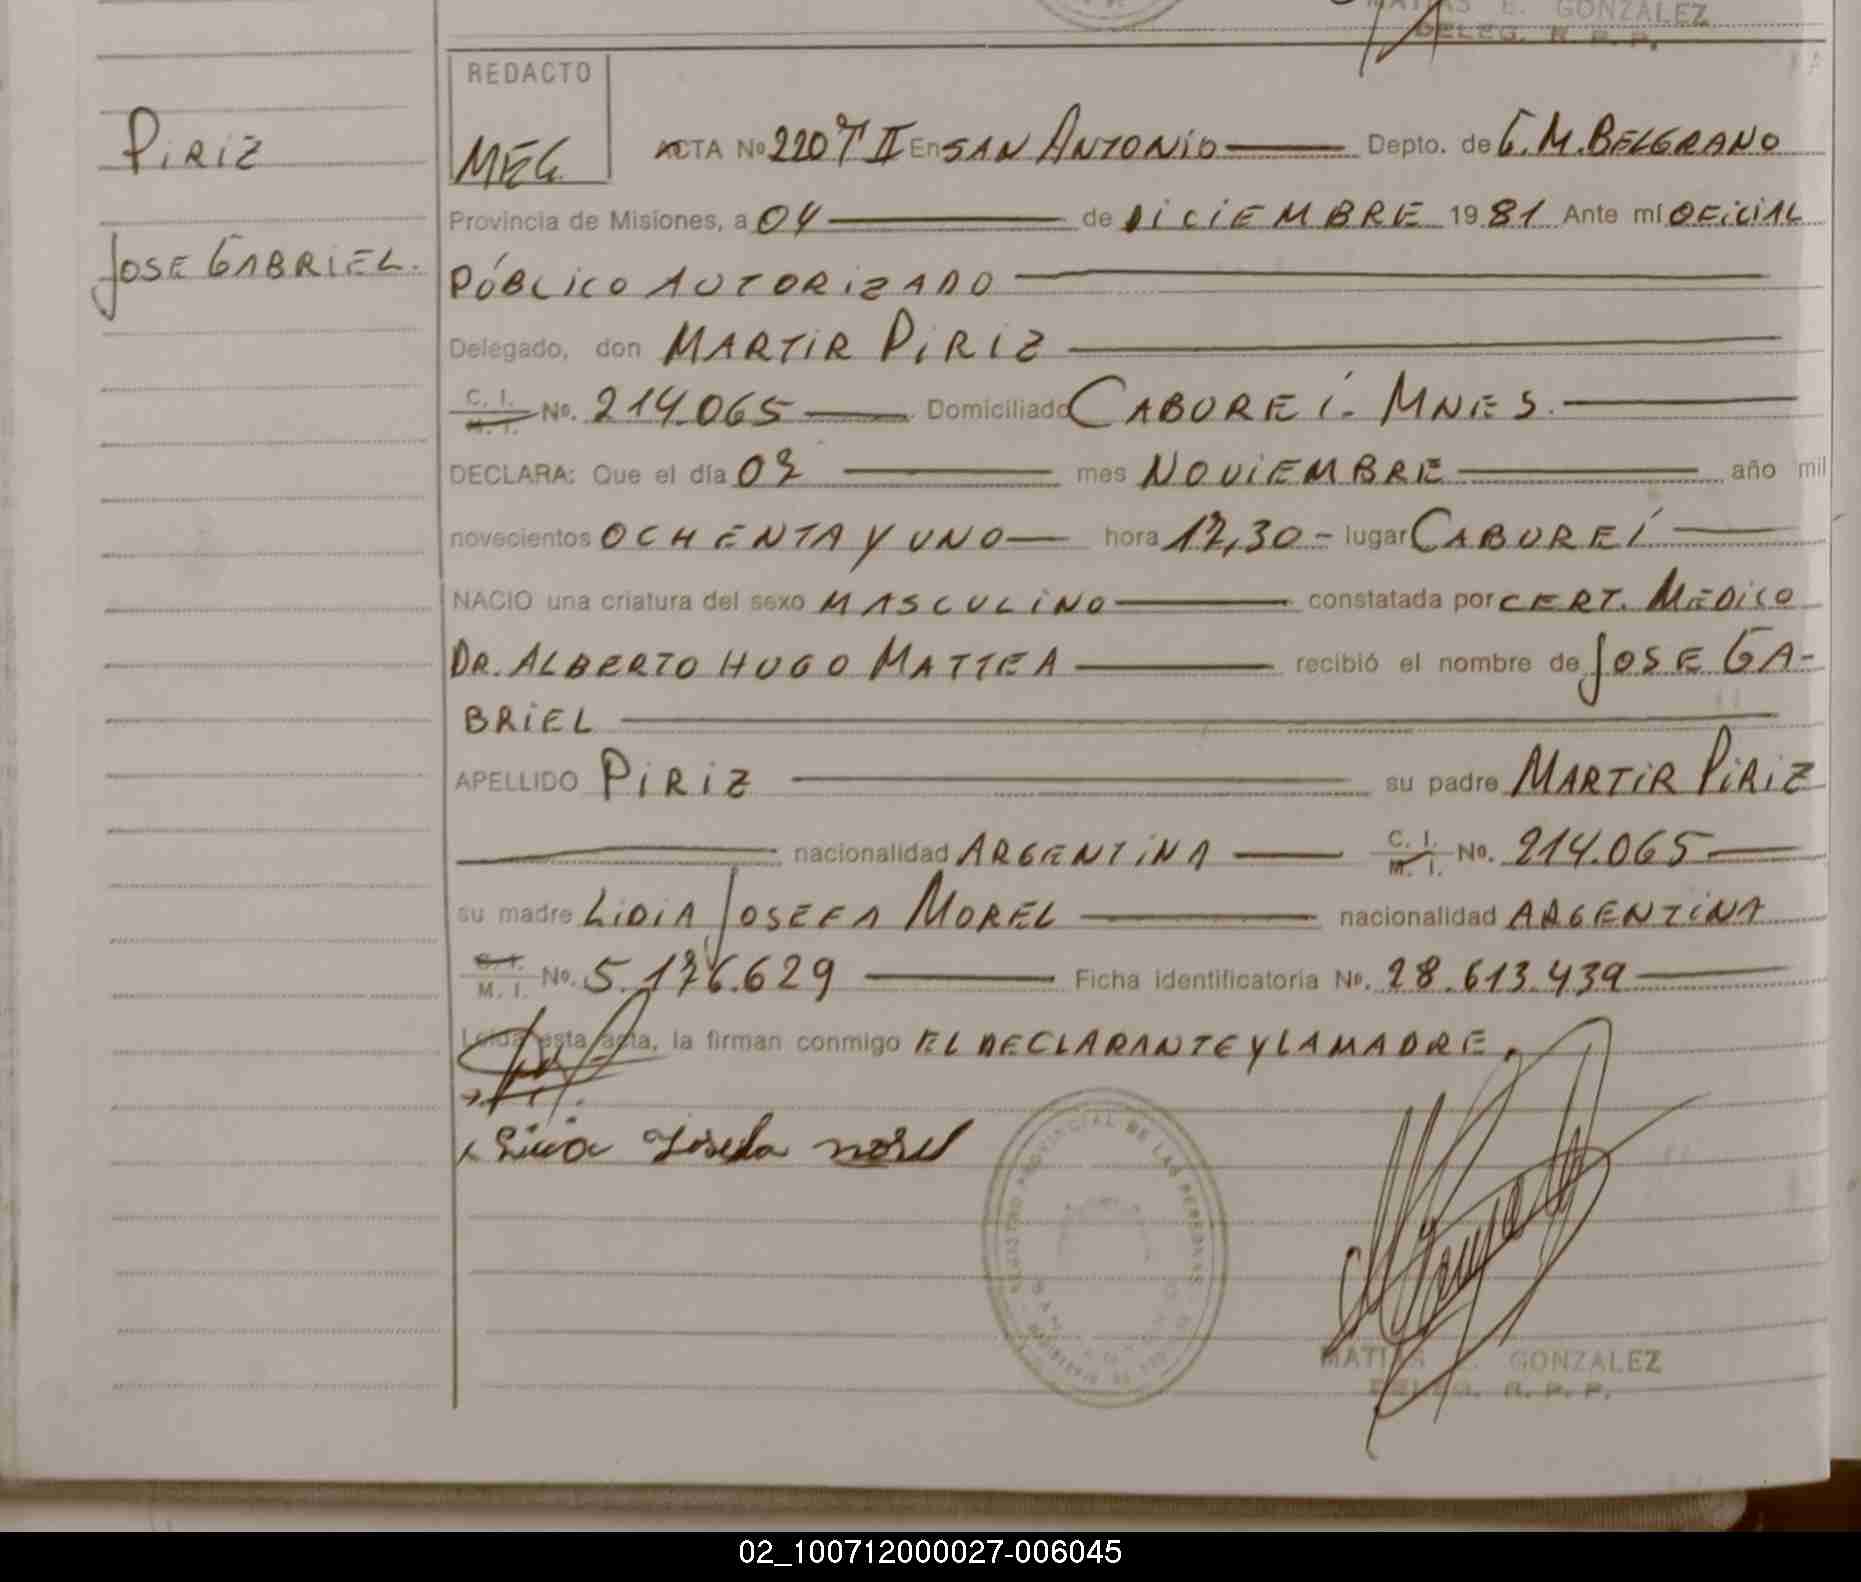 MATIAS E. GONZALEZ
DELEG. R. P. P.
REDACTO
MEG
PIRIZ
JOSE GABRIEL.
ACTA Nº 220 Tº II En SAN ANTONIO Depto. de G. M. BELGRANO
Provincia de Misiones, a 04 de DICIEMBRE 1981 Ante mí OFICIAL
PÚBLICO AUTORIZADO
Delegado, don MARTIR PIRIZ
C. I. M. I. Nº. 214.065 Domiciliado CABUREÍ. MNES.
DECLARA: Que el día 02 mes NOVIEMBRE año mil
novecientos OCHENTA Y UNO hora 12,30 - lugar CABUREÍ
NACIO una criatura del sexo MASCULINO constatada por CERT. MEDICO
DR. ALBERTO HUGO MATTEA recibió el nombre de JOSE GA-
BRIEL
APELLIDO PIRIZ su padre MARTIR PIRIZ
nacionalidad ARGENTINA C. I. M. I. Nº. 214.065
su madre LIDIA JOSEFA MOREL nacionalidad ARGENTINA
C. I. M. I. Nº. 5.176.629 Ficha identificatoria Nº. 28.613.439
Leída esta acta, la firman conmigo EL DECLARANTE Y LA MADRE.
x Lidia Josefa morel
REGISTRO PROVINCIAL DE LAS PERSONAS
SAN ANTONIO
MATIAS E. GONZALEZ
DELEG. R. P. P.
02_100712000027-006045